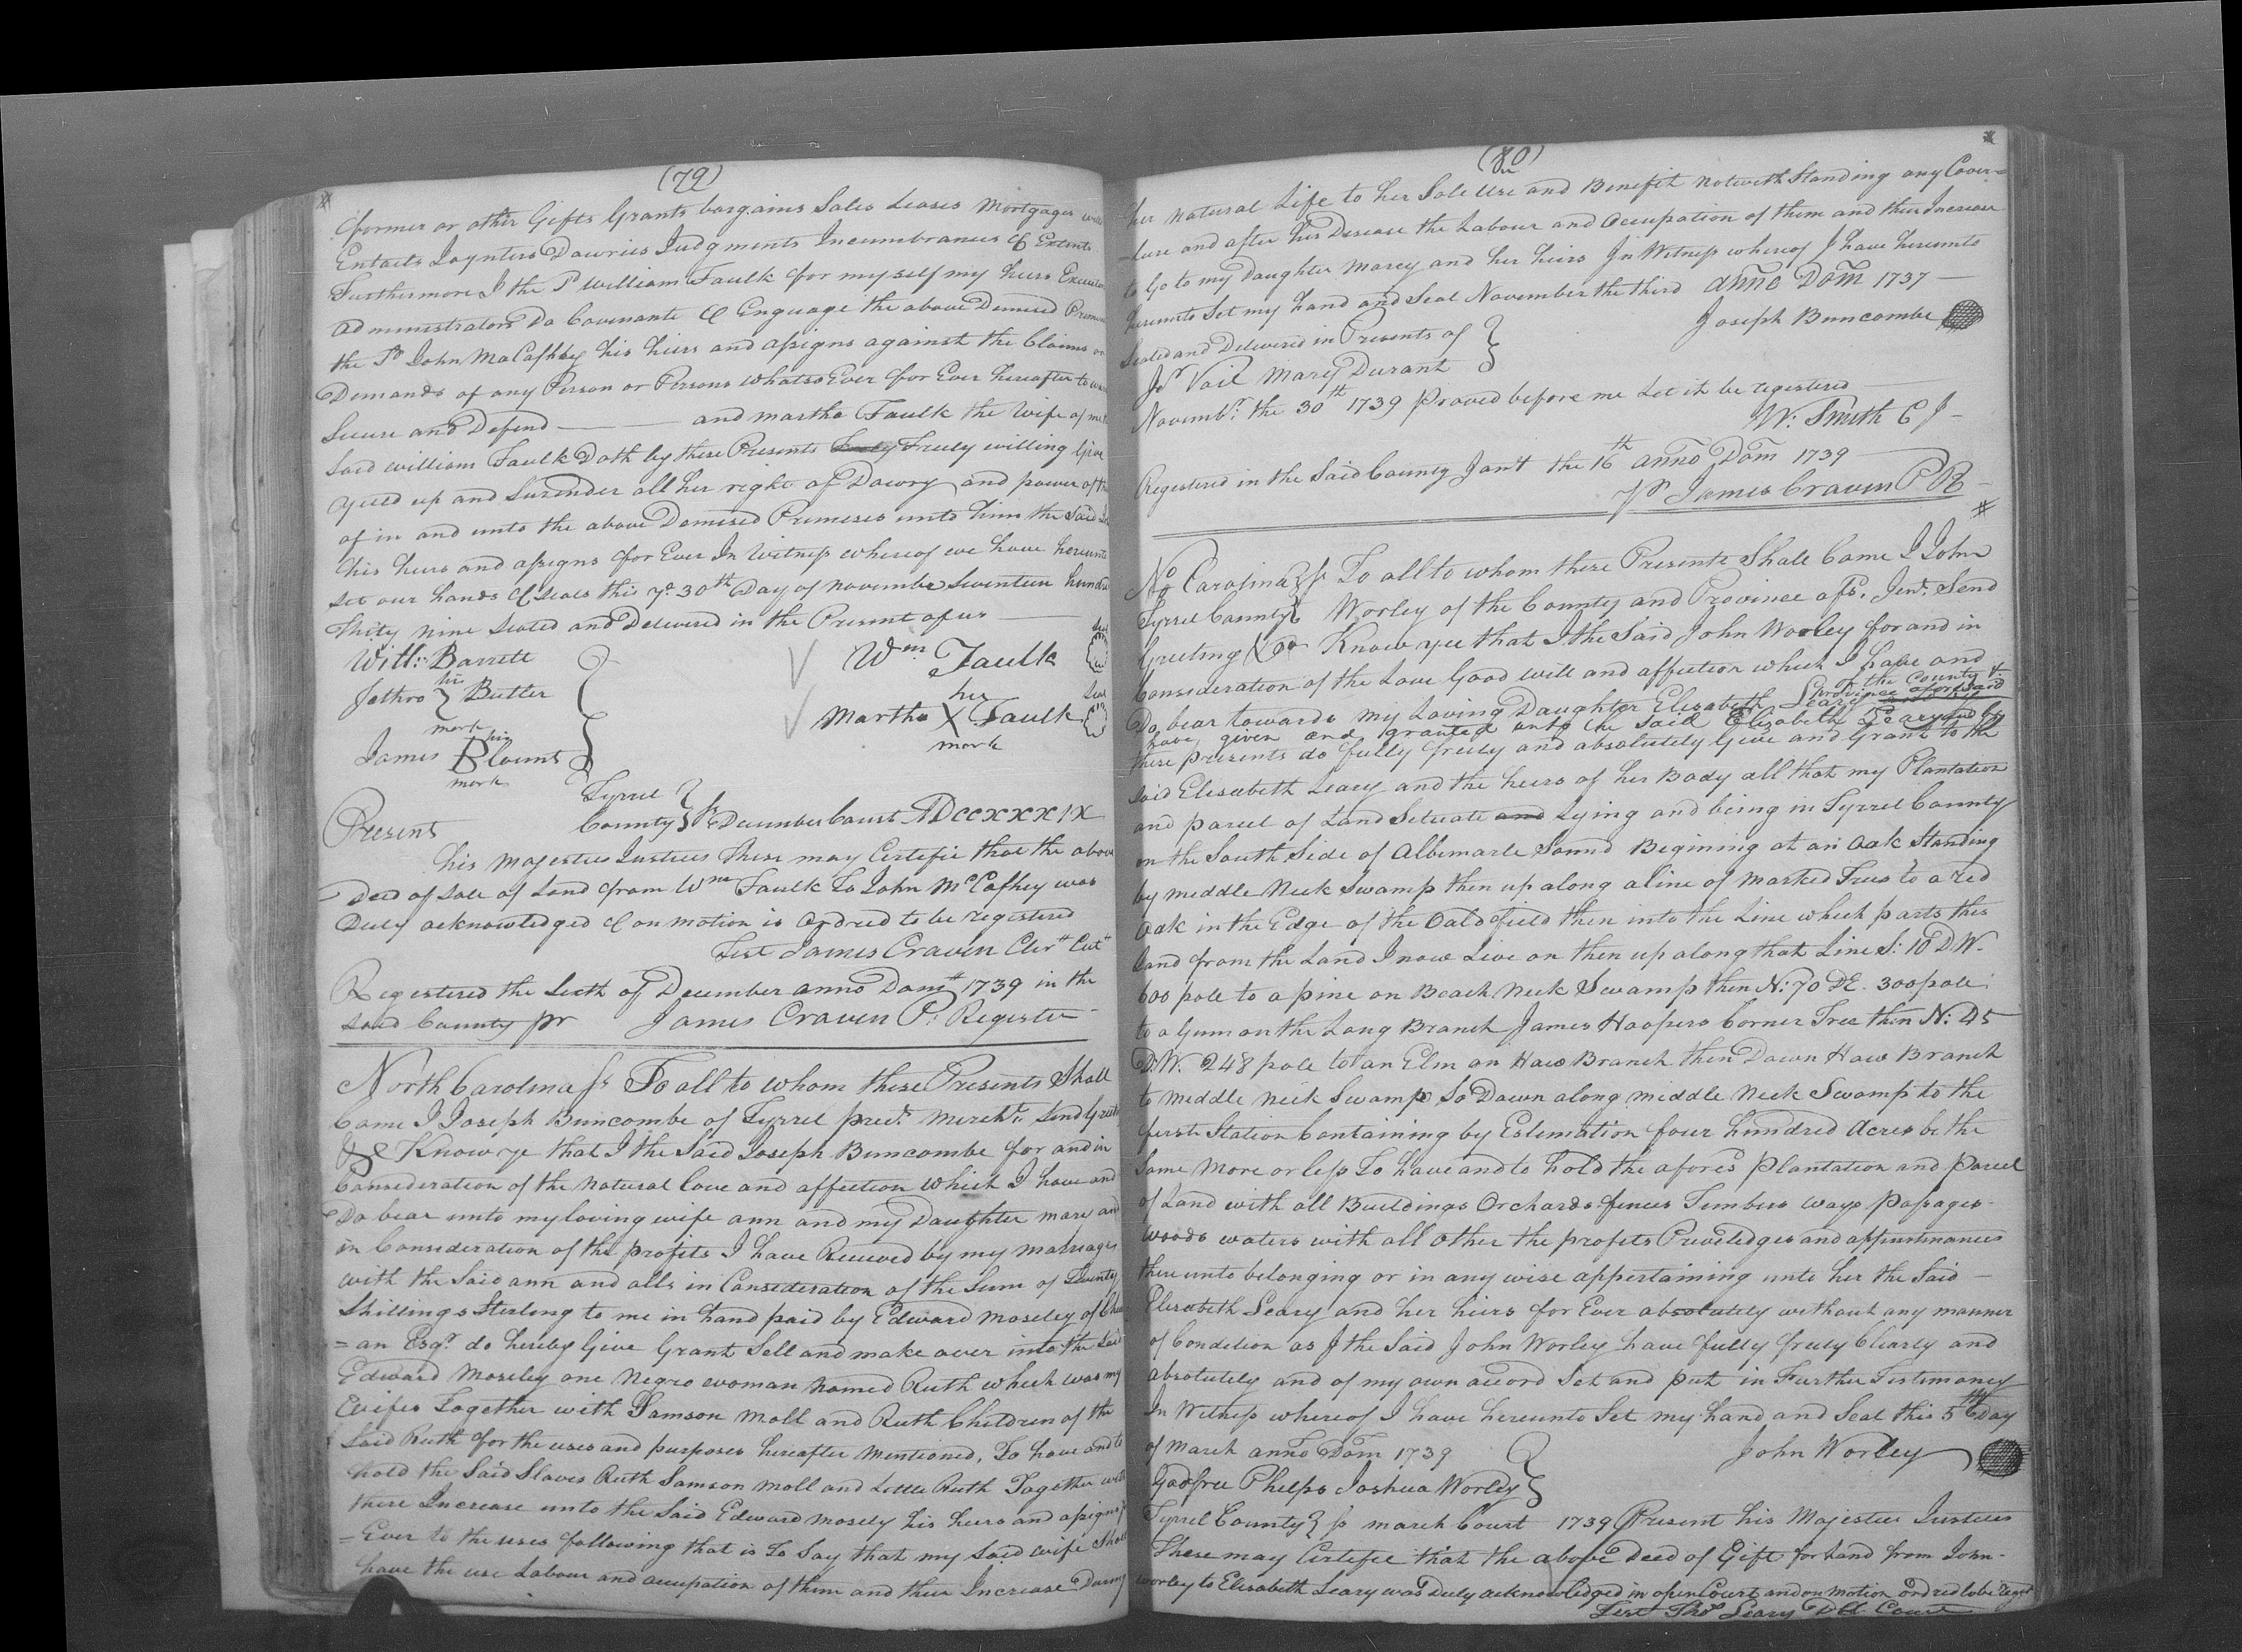 (79)
former or other Gifts Grants bargains Sales Leases Mortgages
Entails Joynters Dowries Judgments Incumbrances & Extents
Furthermore I the Sd William Faulk for myself my heirs Executors
administrators Do Covenante & Enguage the above Demised
the Sd John MaCafhey his heirs and assigns against the Claims or
Demands of any Person or Persons whatsoEver for Ever hereafter to
Secure and Defend — and martha Faulk the Wife of me
Said william Faulk Doth by these Presents Freely willing Give
yeeld up and Surender all her right of Dowry and power of
of in and unto the above Demised Premeses unto him the Said
his heirs and assigns for Ever In Witness whereof we have hereunto
set our hands & seals this ye 30th Day of november Seventeen hundred
thirty nine Seated and Delivered in the Present of us
Will: Barrett
Wm Faulk seal
Jethro his Butler
mark
her
Martha X Faulk seal
mark
James his Blount
mark
Tyrrel
County } ss December Court MDCCXXXIX
Present
his majesties Justices these may Certefie that the above
Deed of Sale of Land from Wm Faulk To John McCafhey was
Duly acknowledged & on motion is ordred to be registered
Test James Craven Cler Cut
Regestered the Sixth of December anno Dom 1739 in the
said County pr James Craven P: Register
North Carolina ss To all to whom these Presents Shall
Come I Joseph Buncombe of Tyrrel prect. Mercht. Send Greeting
&c Know ye that I the Said Joseph Buncombe for and in
Consideration of the natural love and affection which I have and
Do bear unto my loving wife ann and my Daughter mary and
in Consideration of the profits I have Received by my marriage
with the Said ann and alls in Consideration of the Sum of Twenty
Shillings Sterling to me in hand paid by Edward Moseley of
= an Esqr. do hereby Give Grant Sell and make over into the Said
Edward Moseley one Negro woman named Ruth which was my
Wifes Together with Samson Moll and Ruth Children of the
Said Ruth for the uses and purposes hereafter Mentioned, To have and to
hold the Said Slaves Ruth Samson Moll and Little Ruth Together with
there Increase unto the Said Edward Mosely his heirs and assigns
= Ever to the uses following that is To Say that my Said wife Shall
have the use Labour and occupation of them and their Increase During
(80)
her natural Life to her Sole Use and Benefit notwithStanding any Cover=
-ture and after her Decease the Labour and Occupation of them and their Increase
to Go to my Daughter Marey and her heirs In Witness whereof I have hereunto
hereunto Set my hand and Seal November the third anno Dom 1737
Joseph Buncombe
Sealed and Delivered in Presents of
Jer Vail Mary Durant
Novembr. the 30th 1739 Proved before me Let it be registered
W: Smith C J
Registered in the Said County Jany the 16th anno Dom 1739
Pr James Craven P R
No Carolina ss To all to whom these Presents Shall Came I John
Tyrrel County Worley of the County and Province afsd. Jent. Send
Greeting &c Know yee that I the Said John Worley for and in
Consideration of the Love Good will and affection which I have and
Do bear towards my Loving Daughter Elizabeth Leary of the County & province aforesaid
have given and granted unto the said Elizabeth Leary and by
these presents do fully freely and absolutely Give and Grant to the
said Elizabeth Leary and the heirs of her Body all that my Plantation
and parcel of Land Setuate and Lying and being in Tyrrel County
on the South Side of Albemarle Sound Begining at an oak Standing
by meddle Neck Swamp then up along a line of marked Trees to a red
oak in the Edge of the Oald field then into the Line which parts this
Land from the Land I now Live on then up along that Line S: 10 D W.
600 pole to a pine on Beach Neck Swamp then N: 70 DE. 300 pole
to a Gum on the Long Branch James Hoopers Corner Tree then N: 45
D:W. 248 pole to an Elm on Haw Branch then Down Haw Branch
to meddle neck Swamp So Down along middle Neck Swamp to the
first Station Containing by Estemation four hundred Acres be the
Same More or less To have and to hold the afores'd Plantation and Parcel
of Land with all Buildings Orchards fences Timbers ways Passages
woods waters with all other the profets Priveledges and appurtinances
there unto belonging or in any wise appertaining unto her the Said
Elisabeth Leary and her heirs for Ever absolutely without any manner
of Condition as I the Said John Worley have fully freely Clearly and
absolutely and of my own accord Set and put in Further Testimoney
In Witness whereof I have hereunto Set my hand and Seal this 5th Day
of March anno Dom 1739
John Worley
Godfree Phelps Joshua Worley
Tyrrel County } ss march Court 1739 Present his Majesties Justices
These may Certefie that the above Deed of Gift for Land from John
worley to Elisabeth Leary was Duly acknowledged in open Court and on motion ordred to be Regest
Test Thos Leary D Cl Court